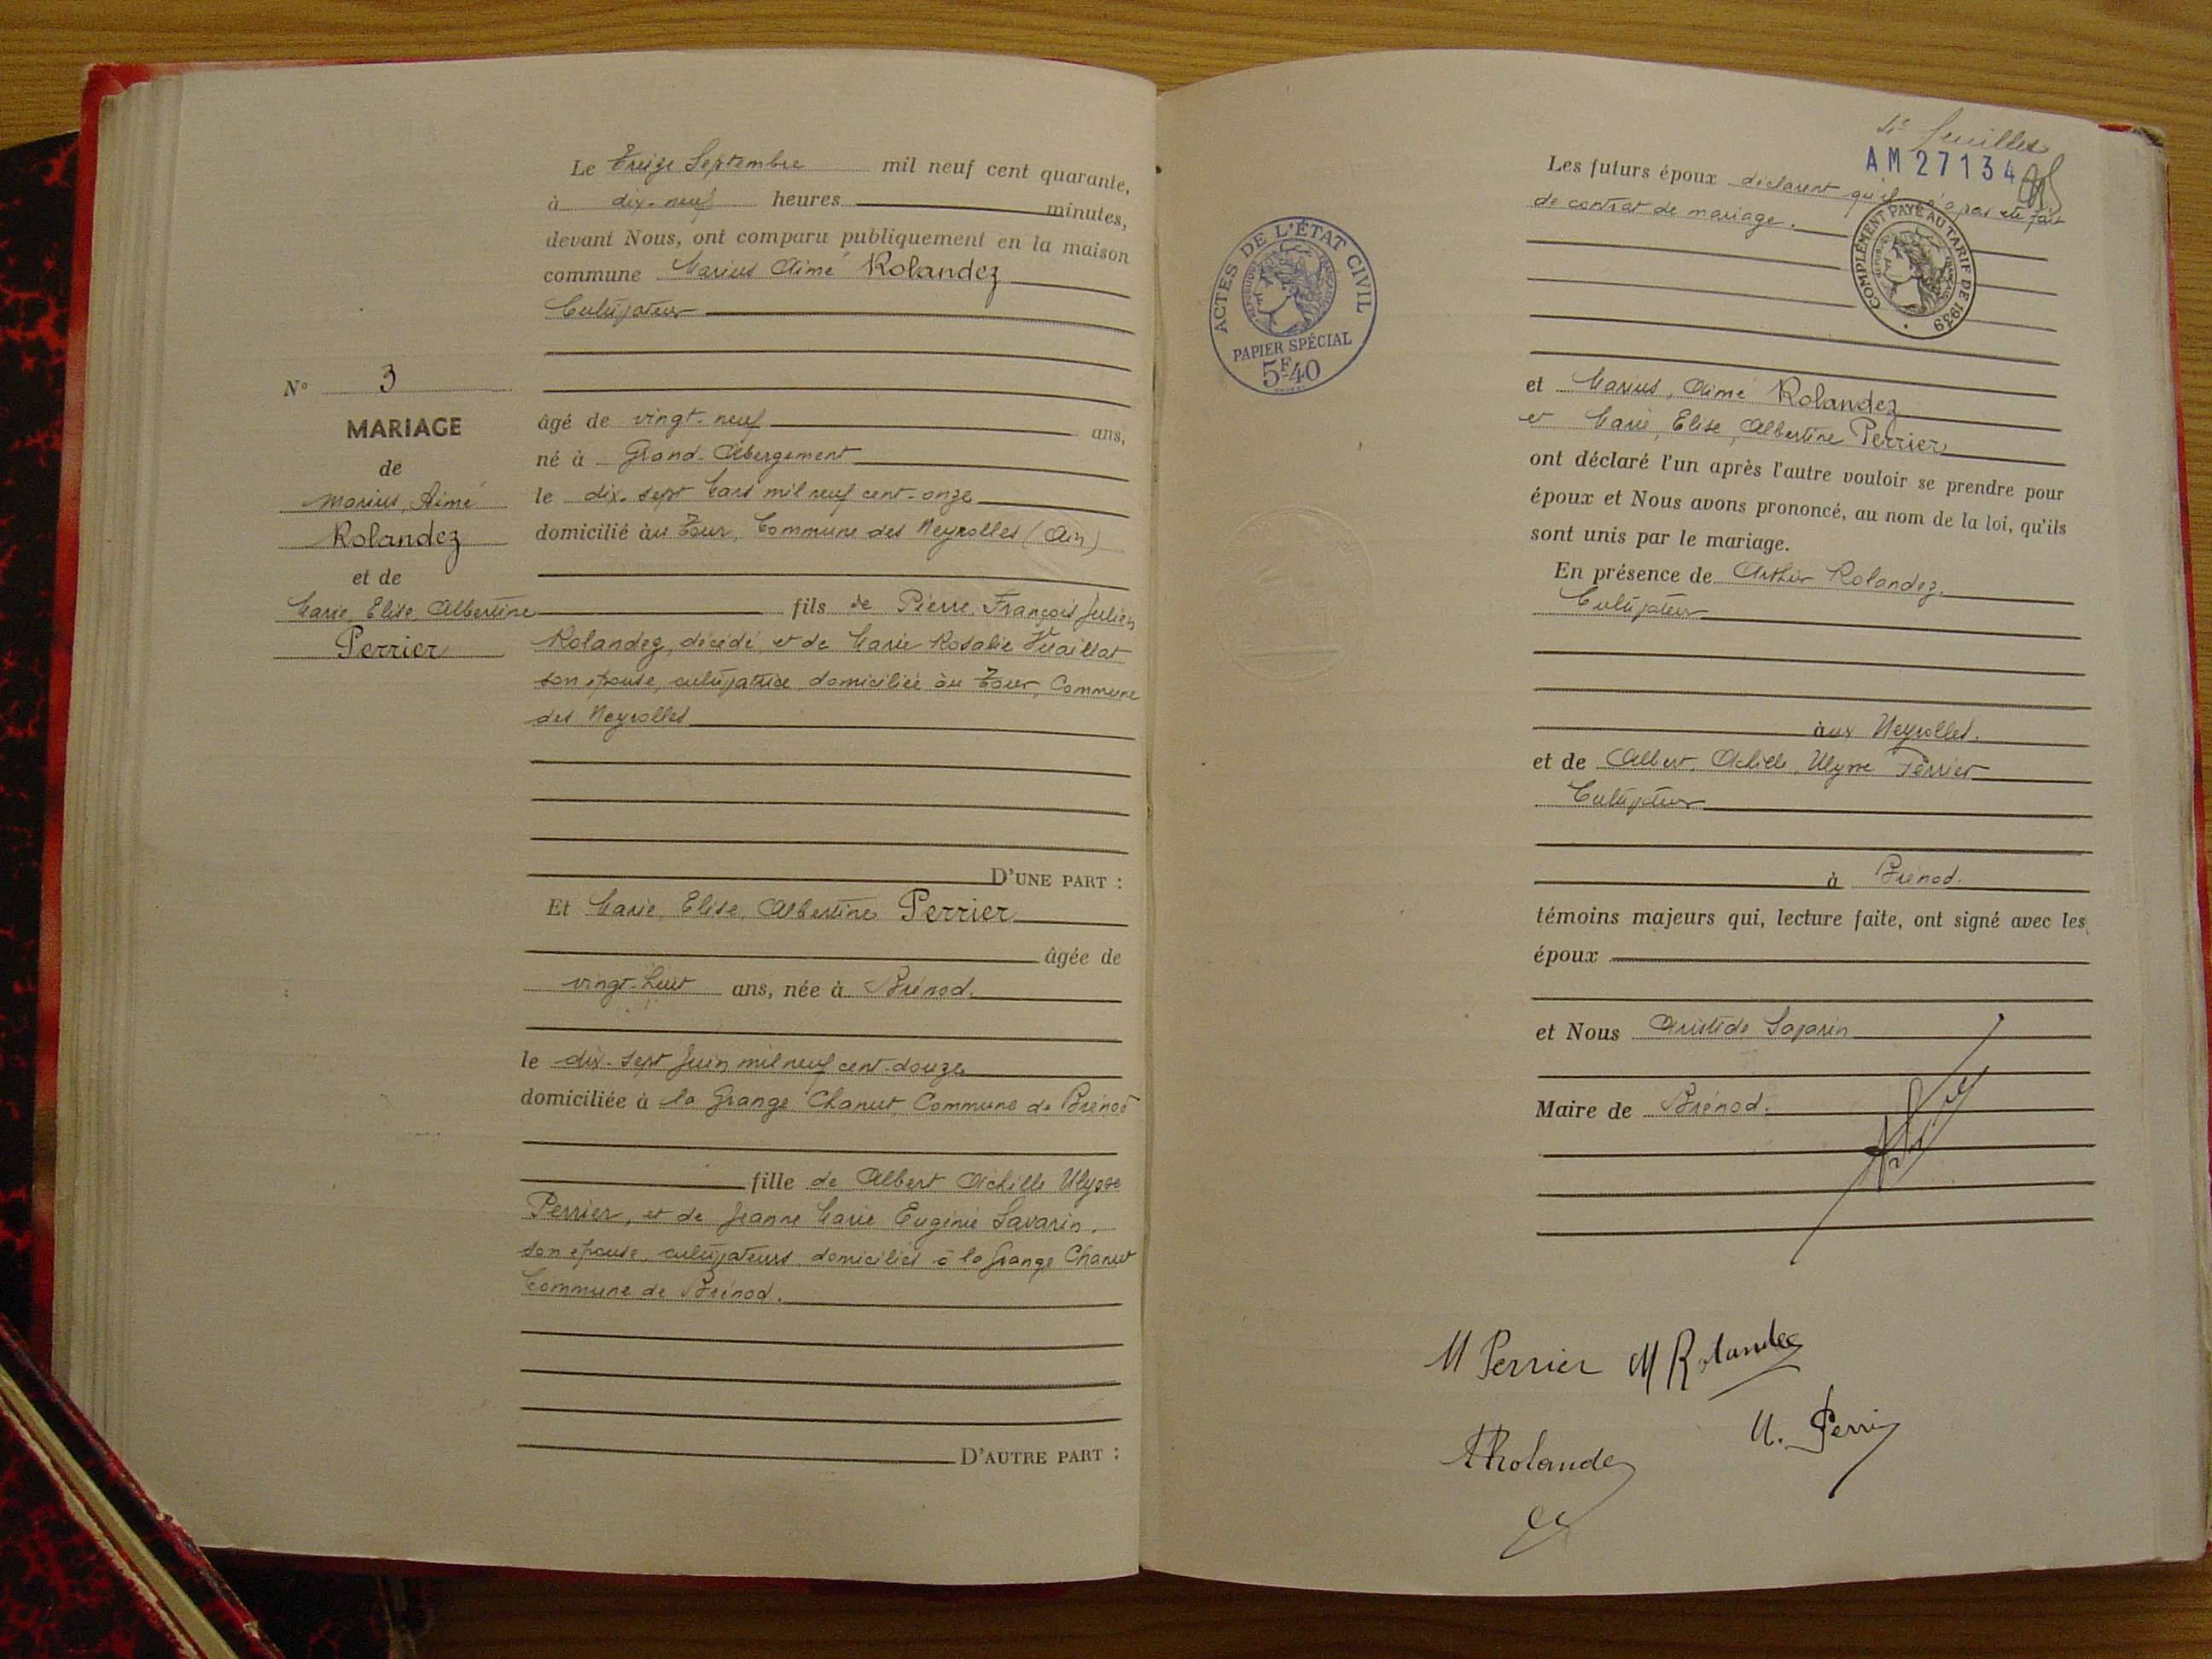 Le Treize Septembre mil neuf cent quarante,
à dix-neuf heures minutes,
devant Nous, ont comparu publiquement en la maison
commune Marius Aimé Rolandez
Cultivateur
N° 3
MARIAGE
de
Marius, Aimé
Rolandez
et de
Marie, Elise, Albertine
Perrier
âgé de vingt-neuf ans,
né à Grand-Abergement
le dix-sept Mars mil neuf cent-onze
domicilié au Tour, Commune des Neyrolles (Ain)
fils de Pierre, François Julien
Rolandez, décédé, et de Marie Rosalie Vuaillat
son épouse, cultivatrice, domiciliée au Tour, Commune
des Neyrolles
D'UNE PART :
Et Marie, Elise, Albertine Perrier
âgée de
vingt-huit ans, née à Brénod.
le dix-sept Juin mil neuf cent-douze
domiciliée à la Grange Chanut, Commune de Brénod
fille de Albert Achille Ulysse
Perrier, et de Jeanne Marie Eugénie Savarin,
son épouse, cultivateurs, domiciliés à la Grange Chanut
Commune de Brénod.
D'AUTRE PART :
ACTES DE L'ÉTAT CIVIL
RÉPUBLIQUE FRANÇAISE
PAPIER SPÉCIAL
5F40
feuilles
AM 27134
COMPLÉMENT PAYÉ AU TARIF DE 1939
Les futurs époux déclarent qu'il n'a pas été fait
de contrat de mariage.
et Marius, Aimé Rolandez
et Marie, Elise, Albertine Perrier
ont déclaré l'un après l'autre vouloir se prendre pour
époux et Nous avons prononcé, au nom de la loi, qu'ils
sont unis par le mariage.
En présence de Arthur Rolandez,
Cultivateur
aux Neyrolles.
et de Albert, Achille, Ulysse Perrier
Cultivateur
à Brénod.
témoins majeurs qui, lecture faite, ont signé avec les
époux
et Nous Aristide Savarin
Maire de Brénod.
M Perrier M Rolandez
A Rolandez U. Perrier